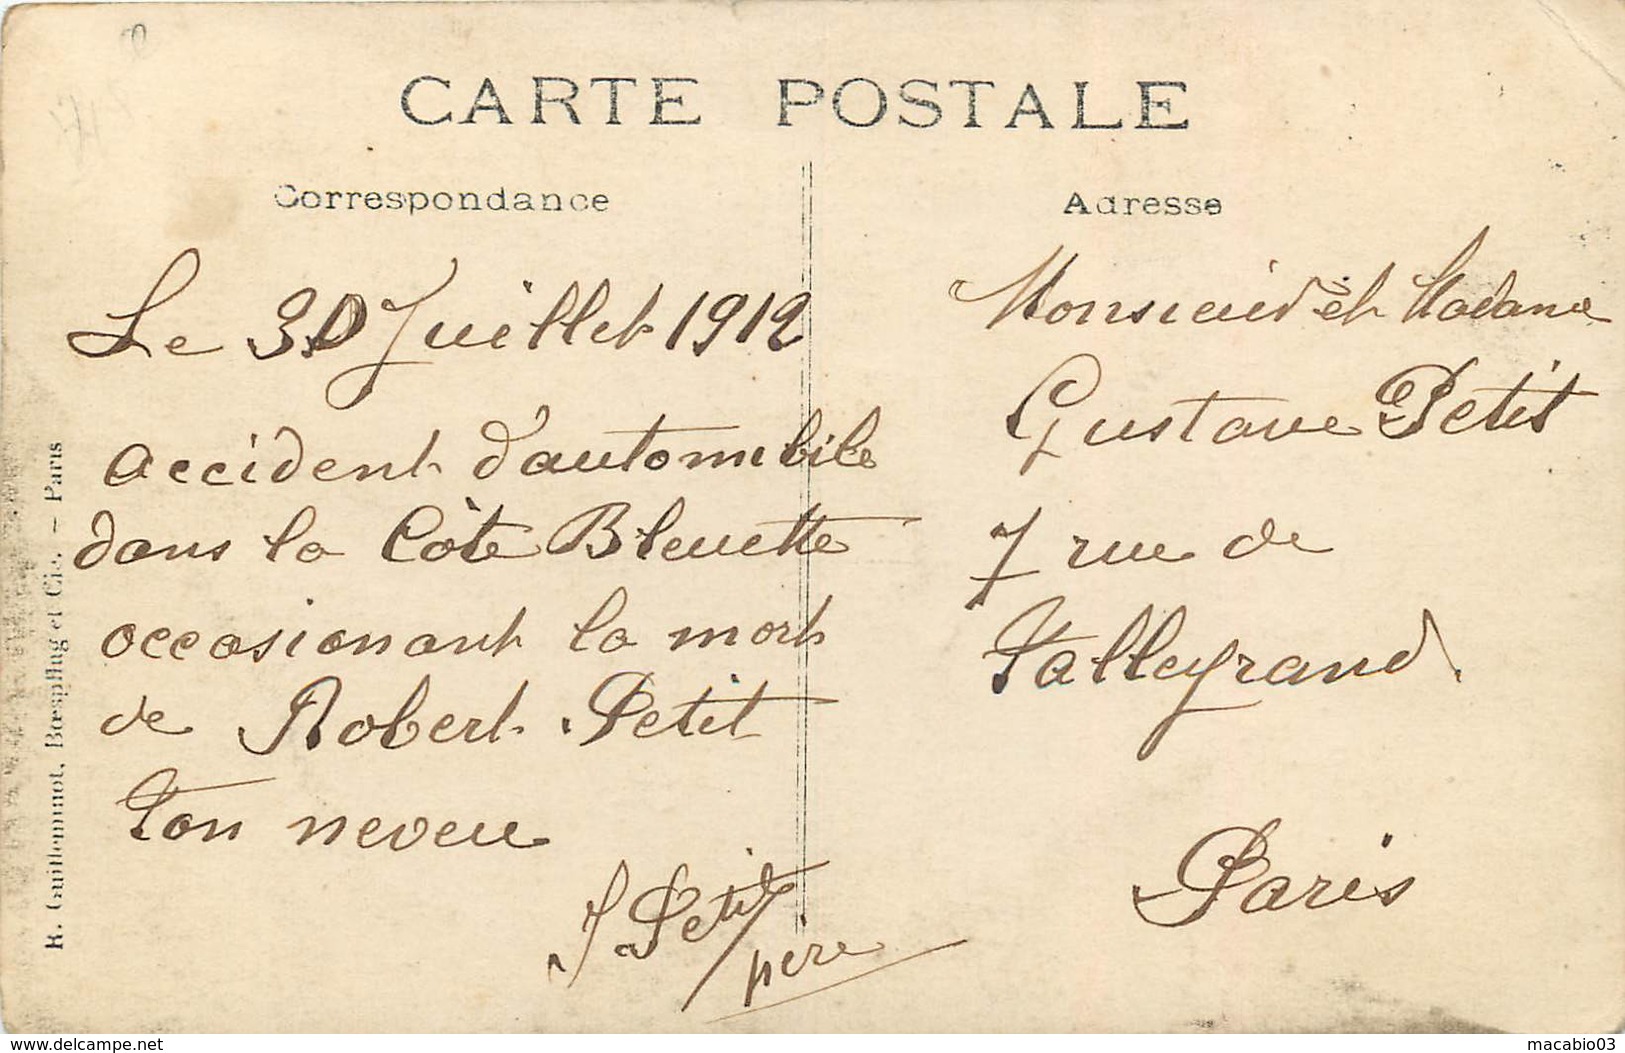 CARTE POSTALE
Correspondance
Le 30 Juillet 1912
accident d'automobile
dans la Côte Bleuette
occasionant la mort
de Robert Petit
ton neveu
J Petit
père
Adresse
Monsieur et Madame
Gustave Petit
7 rue de
Talleyrand.
Paris
R. Guilleminot, Bœspflug et Cie. – Paris
delcampe.net
macabio03